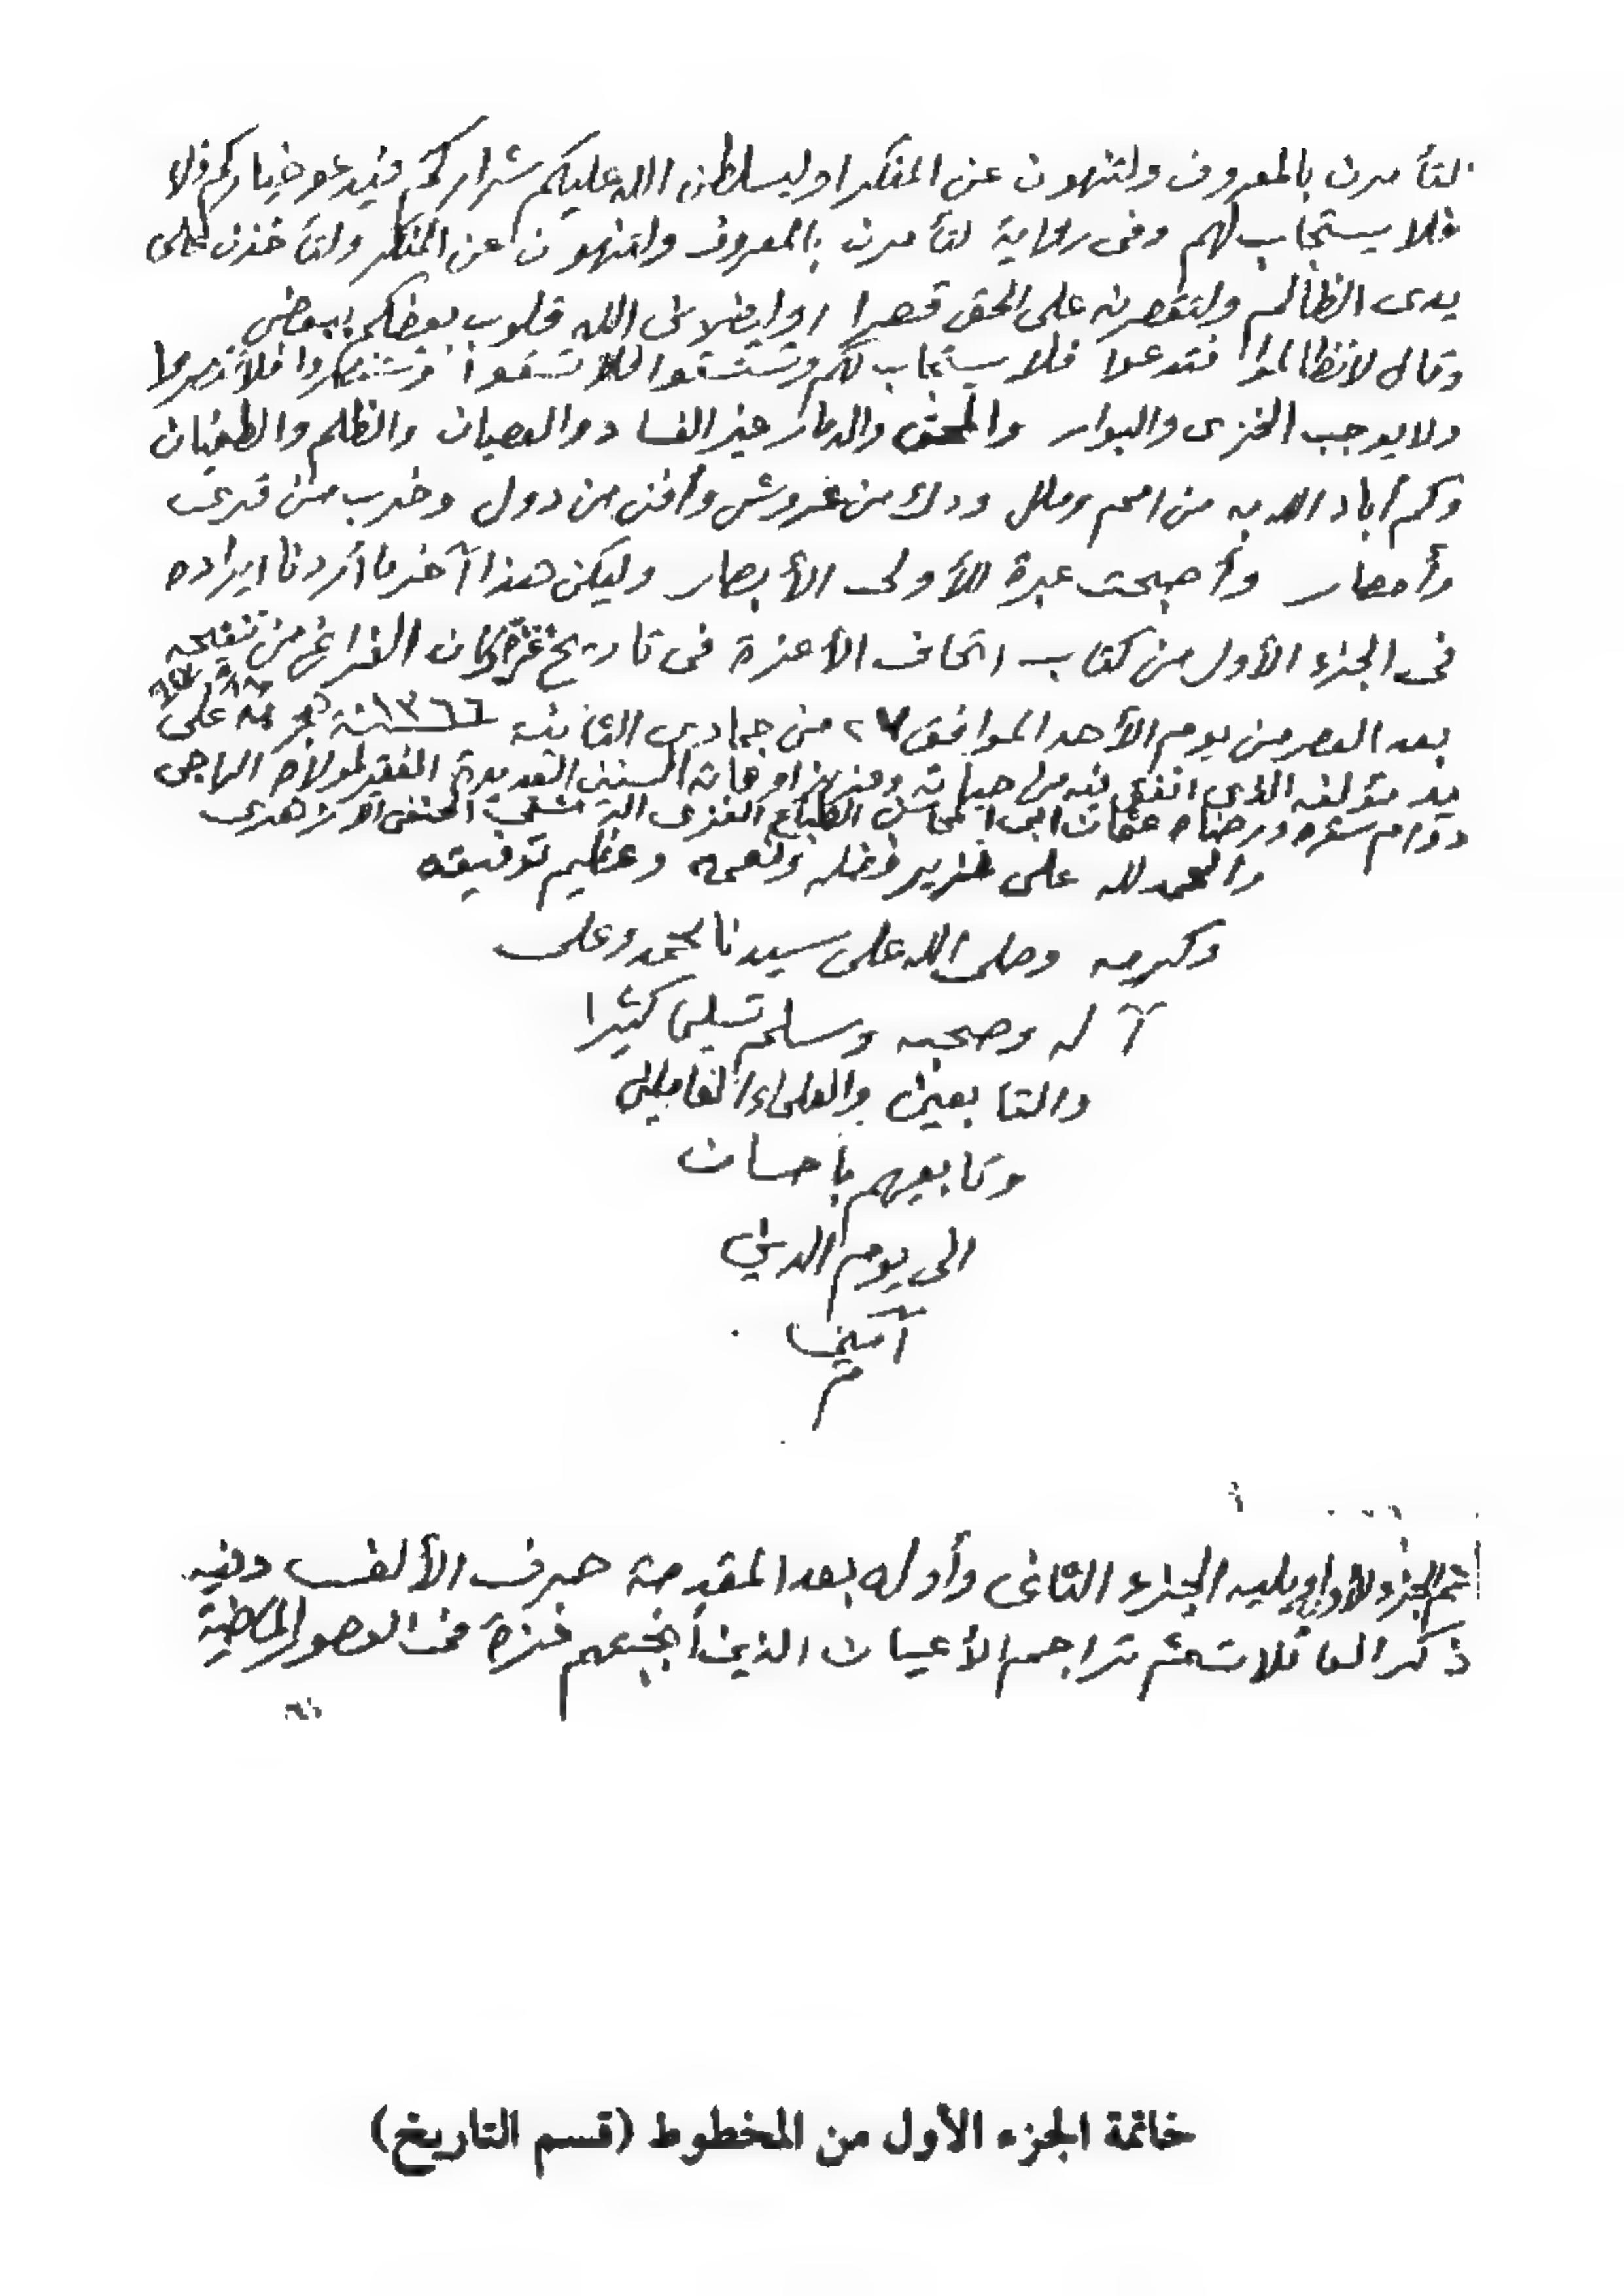 لتأمرن بالمعروف ولتنهون عن المنكر او ليسلطن الله عليكم شراركم فيدعو خياركم فلا
فلا يستجاب لهم وفى رواية لتأمرن بالمعروف ولتنهون عن المنكر ولتأخذن على
يدى الظالم ولتقصرنه على الحق قصرا او ليضربن الله قلوب بعضكم ببعض
وقال لا تظالموا فتدعوا فلا يستجاب لكم وتستسقوا فلا تسقوا وتستنصروا فلا تنصروا
ولا يوجب الخزى والبوار والمحق والدمار غير الفساد والعصيان والظلم والطغيان
وكم أباد الله به من امم وملل ودك من عروش وأفنى من دول وخرب من قرى
وأمصار وأصبحت عبرة لأولى الأبصار وليكن هذا آخر ما أردنا ايراده
فى الجزء الأول من كتاب اتحاف الأعزة فى تاريخ غزة وكان الفراغ من تنقيحه
بعد العصر من يوم الأحد الموافق ٢٧ من جمادى الثانية سنة ١٣٦٦ هجرية على
يد مؤلفه الذى انفق فيه من حياته ومن اوقاته السنين العديدة الفقير لمولاه الراجى
دوام ستره ورضاه عثمان ابى المحاسن الطباع الغزى الحنفى الازهرى
والحمد لله على غزير فضله ونعمه وعظيم توفيقه
وكرمه وصلى الله على سيدنا محمد وعلى
آله وصحبه وسلم تسليما كثيرا
والتابعين والعلماء العاملين
وتابعيهم بأحسان
الى يوم الدين
آمين
م
تم الجزء الاول ويليه الجزء الثانى وأوله بعد المقدمة حرف الألف وفيه
ذكر العائلات ثم تراجم الأعيان الذين أنجبتهم غزة فى العصور الماضية
خاتمة الجزء الأول من المخطوط (قسم التاريخ)